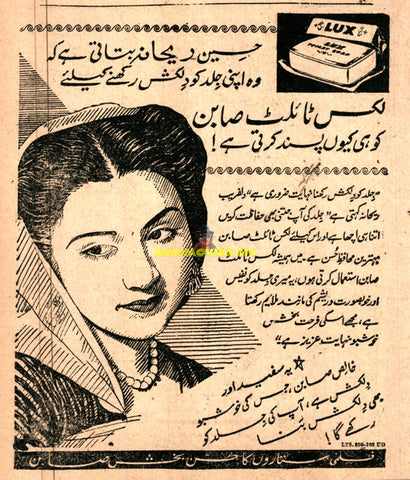 LUX
LUX
TOILET SOAP
حسین ریحانہ بتاتی ہے کہ
وہ اپنی جلد کو دلکش رکھنے کیلئے
لکس ٹائلٹ صابن
کو ہی کیوں پسند کرتی ہے!
"جلد کو دلکش رکھنا نہایت ضروری ہے" دلفریب
ریحانہ کہتی ہے "جلد کی آپ جتنی بھی حفاظت کریں
اتنا ہی اچھا ہے اور اس کیلئے لکس ٹائلٹ صابن
بہترین محافظِ حُسن ہے۔ میں ہمیشہ لکس ٹائلٹ
صابن استعمال کرتی ہوں، یہ میری جلد کو نفیس
اور خوبصورت و ریشم کی مانند ملایم رکھتا
ہے، مجھے اسکی فرحت بخش
خوشبو نہایت عزیز ہے"
☆ یہ سفید اور
خالص صابن، جس کی خوشبو
دلکش ہے، آپ کی جلد کو
بھی دلکش بنا
رکھے گا!
LTS. 250-160 UD
فلمی ستاروں کا حسن بخش صابن